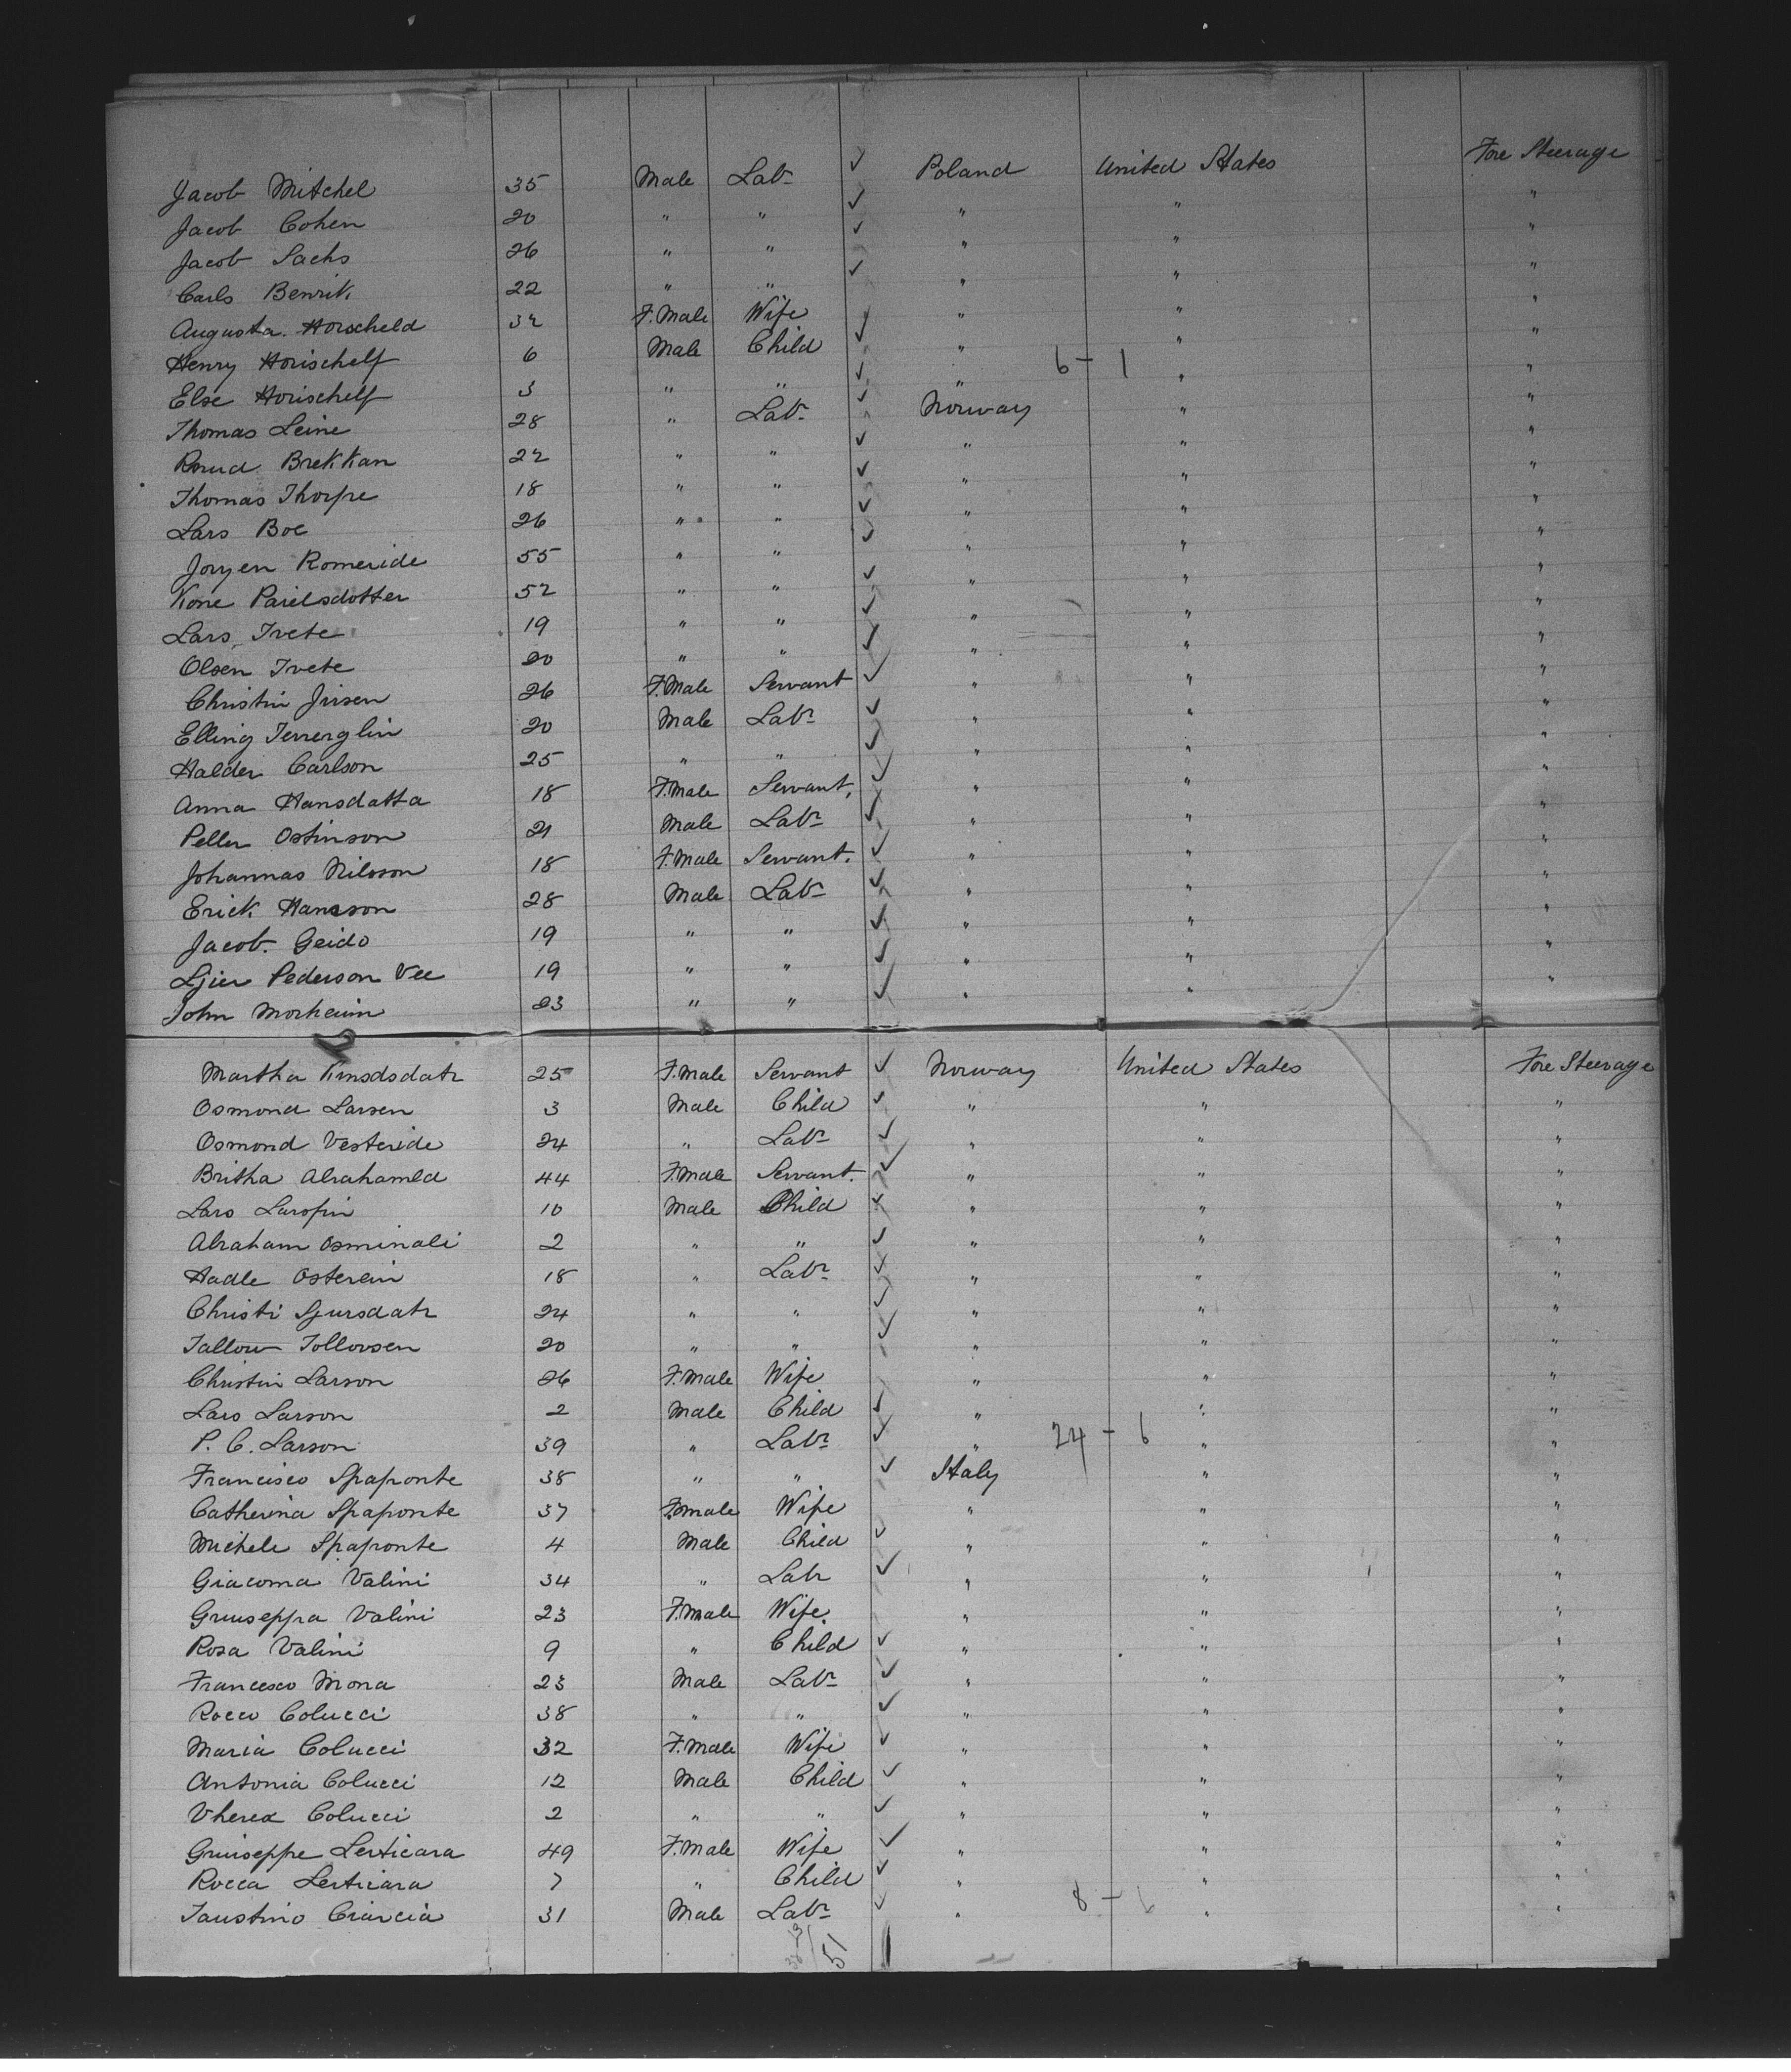 Jacob Mitchel 35 Male Labr Poland United States Fore Steerage
Jacob Cohen 20 " " " " "
Jacob Sachs 26 " " " " "
Carls Benrik 22 " " " " "
Augusta. Horscheld 32 F.Male Wife " " "
Henry Horischelf 6 Male Child " " "
Else Horischelf 3 " " " 6 - 1 " "
Thomas Leine 28 " Labr Norway " "
Brekkan 22 " " " " "
Thomas Thorpe 18 " " " " "
Lars Boe 26 " " " " "
Joryen Romeride 55 " " " " "
Kone Parielsdotter 52 " " " " "
Lars Tvete 19 " " " " "
Olsen Tvete 20 " " " " "
Christin Jirsen 26 F.Male Servant " " "
Elling 20 Male Labr " " "
Halder Carlson 25 " " " " "
Anna Hansdatta 18 F.Male Servant. " " "
Peller Ostinson 21 Male Labr " " "
Johannas Nilsson 18 F.Male Servant. " " "
Erick Hansson 28 Male Labr " " "
Jacob. Geido 19 " " " " "
Pederson Vee 19 " " " " "
John Morheim 23 " " " " "
Martha 25 F.Male Servant Norway United States Fore Steerage
Osmond Larsen 3 Male Child " " "
Osmond Vesteride 24 " Labr " " "
Britha Abrahamld 44 F.Male Servant. " " "
Lars Larspin 10 Male Child " " "
Abraham Osminali 2 " " " " "
Hadle Osterein 18 " Labr " " "
Christi Sjursdatr 24 " " " " "
Tallow Tollovsen 20 " " " " "
Christin Larson 26 F.Male Wife " " "
Lars Larson 2 Male Child " " "
P. C. Larson 39 " Labr " 24 - 6 " "
Francisco Spaponte 38 " " Italy " "
Catherina Spaponte 37 F.male Wife " " "
Michele Spaponte 4 Male Child " " "
Giacoma Valini 34 " Labr " " "
Gruuseppa Valini 23 F.Male Wife. " " "
Rosa Valini 9 " Child " " "
Francesco Mona 23 Male Labr " " "
Rocco Colucci 38 " " " " "
Maria Colucci 32 F.Male Wife " " "
Antonia Colucci 12 Male Child " " "
Vherea Colucci 2 " " " " "
Gruiseppe Lerticara 49 F.Male Wife " " "
Rocca Lerticara 7 " Child " " "
Faustino Ciarcia 31 Male Labr " 8 - 6 " "
51